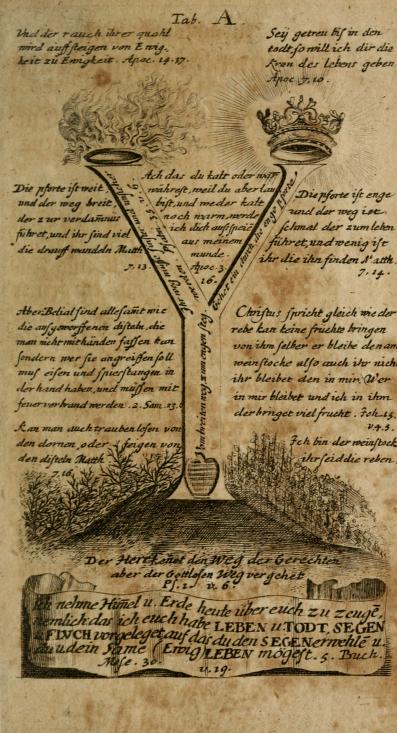 Tab. A.
Und der rauch ihrer quahl
wird auffsteigen von Ewig-
keit zu Ewigkeit. Apoc. 14.17.
Seÿ getreu biß in den
todt, so will ich dir die
Kron des lebens geben
Apoc. 7, 10.
Die pforte ist weit
und der weg breit
der zur verdamnus
führet, und ihr sind viel
die drauff wandeln Matth
7. 13.
Ach das du kalt oder war
währest, weil du aber lau
bist, und weder kalt
noch warm, werde
ich dich ausspeie
aus meinem
munde.
Apoc. 3.
16.
Die pforte ist enge
und der weg ist
schmal der zum leben
führet, und wenig ist
ihr die ihn finden Matth.
7, 14.
gehet ein durch die enge pforte
vom breiten weg zum engen steg
Aber Belial sind allesamt wie
die ausgeworffenen disteln, die
man nicht mit händer fassen kan
sondern wer sie angreiffen soll
mus eisen und spiesstangen in
der hand haben, und müssen mit
feuer verbrand werden. 2. Sam. 23. 6
Kan man auch trauben lesen von
den dornen, oder feigen von
den disteln Matth
7. 16.
Christus spricht gleich wie der
rebe kan keine früchte bringen
von ihm selber er bleibe den am
weinstocke also auch ihr nich
ihr bleibet den in mir. Wer
in mir bleibet und ich in ihm
der bringet viel frucht. Joh. 15.
v. 4. 5.
Ich bin der weinstock
ihr seid die reben
Der Herr kenet den Weg der Gerechten
aber der Gottlosen Weg vergehet
Ps. 1. v. 6.
Ich nehme Himel u. Erde heute über euch zu zeuge,
nemlich das ich euch habe LEBEN u. TODT, SEGEN
u. FLVCH vorgeleget, auf das du den SEGEN erwehle u.
du u. dein Same (Ewig) LEBEN mögest. 5. Buch.
Mose. 30.
v. 19.